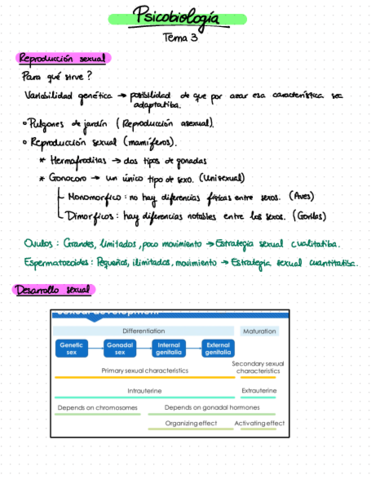 Psicobiología
Tema 3
Reproducción sexual
Para qué sirve?
Variabilidad genética → posibilidad de que por azar esa característica sea
adaptativa.
• Pulgones de jardín (Reproducción asexual).
• Reproducción sexual (mamíferos).
* Hermafroditas → dos tipos de gónadas
* Gonocoro → un único tipo de sexo. (Unisexual)
Monomorfico: no hay diferencias físicas entre sexos. (Aves)
Dimorficos: hay diferencias notables entre los sexos. (Gorilas)
Ovulos: Grandes, limitados, poco movimiento → Estrategia sexual cualitativa.
Espermatozoides: Pequeños, ilimitados, movimiento → Estrategia sexual cuantitativa.
Desarrollo sexual
Differentiation Maturation
Genetic sex Gonadal sex Internal genitalia External genitalia
Primary sexual characteristics Secondary sexual characteristics
Intrauterine Extrauterine
Depends on chromosomes Depends on gonadal hormones
Organizing effect Activating effect